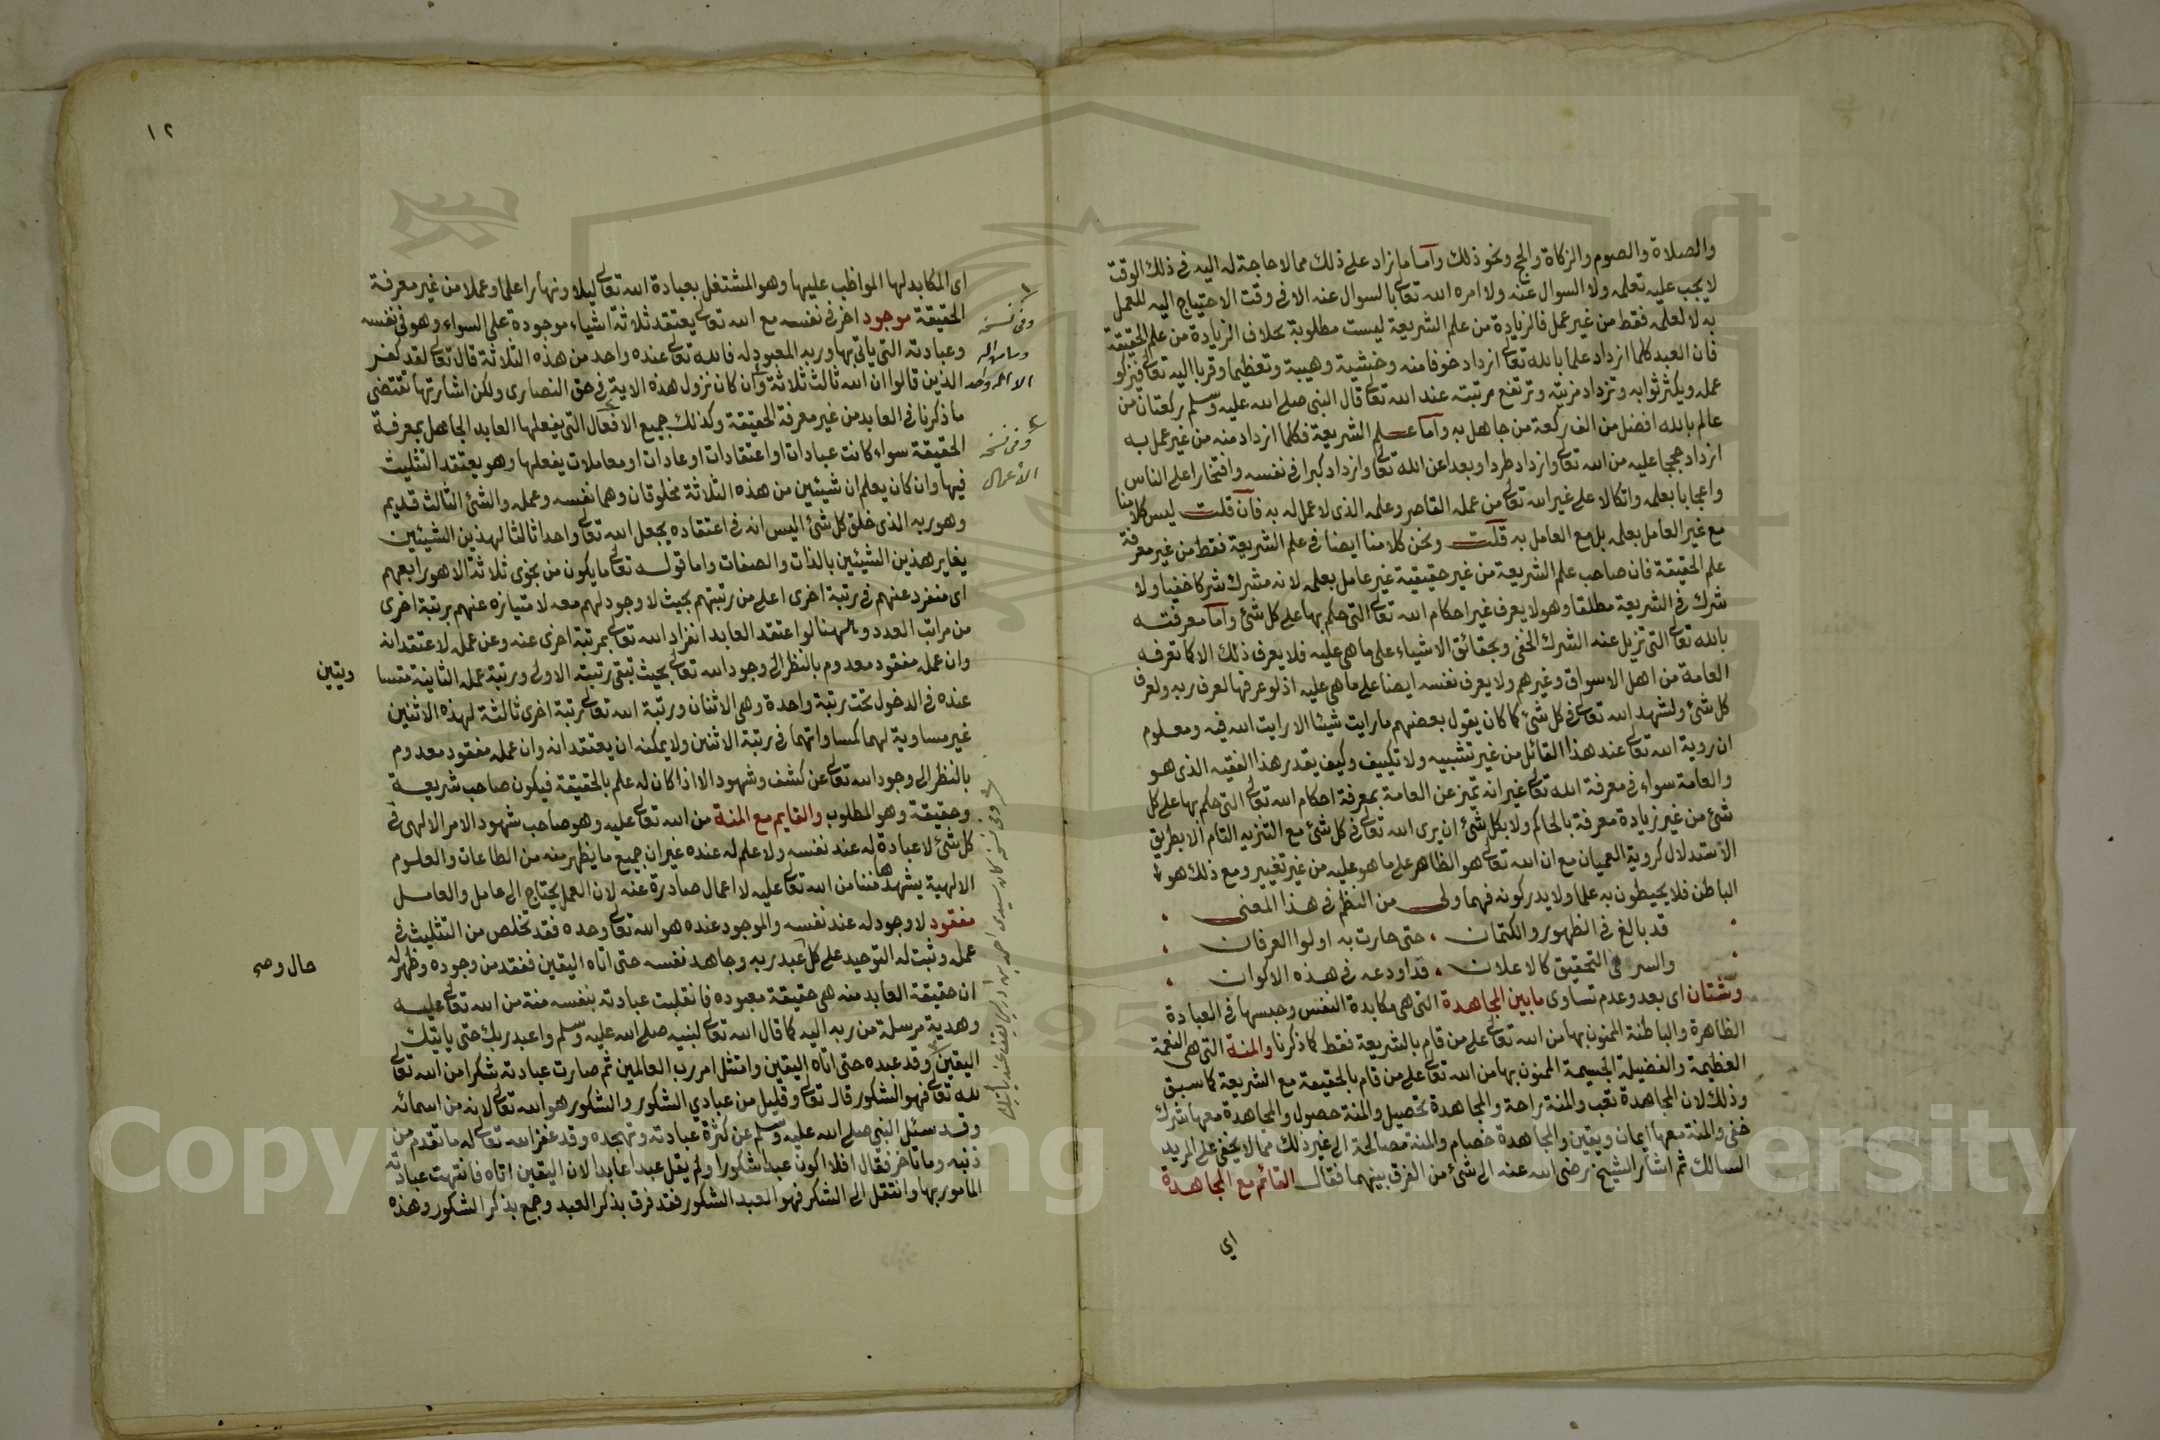 والصلاة والصوم والزكاة والحج ونحو ذلك وأما ما زاد على ذلك مما لا حاجة له اليه في ذلك الوقت
لا يجب عليه تعلمه ولا السوال عنه ولا امره الله تعالى بالسوال عنه الا في وقت الاحتياج اليه للعمل
به لا لعلمه فقط من غير عمل فالزيادة من علم الشريعة ليست مطلوبة بخلاف الزيادة من علم الحقيقة
فان العبد كلما ازداد علما بالله تعالى ازداد خوفا منه وخشية وهيبة وتعظيما وقربا اليه تعالى فيزكو
عمله ويكثر ثوابه وتزداد مزيته وترتفع مرتبته عند الله تعالى قال النبي صلى الله عليه وسلم ركعتان من
عالم بالله افضل من الف ركعة من جاهل به وأما علم الشريعة فكلما ازداد منه من غير عمل به
ازداد حججا عليه من الله تعالى وازداد طردا وبعدا عن الله تعالى وازداد كبرا في نفسه وافتخارا على الناس
واعجابا بعلمه واتكالا على غير الله تعالى من عمله القاصر وعلمه الذي لا عمل له به فأن قلت ليس كلامنا
مع غير العامل بعلمه بل مع العامل به قلت ونحن كلامنا ايضا في علم الشريعة فقط من غير معرفة
علم الحقيقة فان صاحب علم الشريعة من غير حقيقية غير عامل بعلمه لانه مشرك شركا خفيا ولا
شرك في الشريعة مطلقا وهو لا يعرف غير احكام الله تعالى التي حكم بها على كل شئ وأما معرفته
بالله تعالى التي تزيل عنه الشرك الخفي وبحقائق الاشياء على ما هي عليه فلا يعرف ذلك الا كما تعرفه
العامة من اهل الاسواق وغيرهم ولا يعرف نفسه ايضا على ما هي عليه اذ لو عرفها لعرف ربه ولعرف
كل شئ ولشهد الله تعالى في كل شئ كما كان يقول بعضهم ما رايت شيئا الا رايت الله فيه ومعلوم
ان روية الله تعالى عند هذا القائل من غير تشبيه ولا تكييف وكيف يقدر هذا الفقيه الذي هو
والعامة سواء في معرفة الله تعالى غير انه تميز عن العامة بمعرفة احكام الله تعالى التي حكم بها على كل
شئ من غير زيادة معرفة بالحاكم ولا بكل شئ ان يرى الله تعالى في كل شئ مع التنزيه التام الا بطريق
الاستدلال كروية العميان مع ان الله تعالى هو الظاهر على ما هو عليه من غير تغيير ومع ذلك هو
الباطن فلا يحيطون به علما ولا يدركونه فهما ولى من النظم في هذا المعنى
قد بالغ في الظهور والكتمان حتى حارت به اولوا العرفان
والسر في التحقيق كالاعلان قد اودعه في هذه الاكوان
وشتان اى بعد وعدم تساوى ما بين المجاهدة التي هي مكابدة النفس وحبسها في العبادة
الظاهرة والباطنة الممنون بها من الله تعالى على من قام بالشريعة فقط كما ذكرنا والمنة التي هي النعمة
العظيمة والفضيلة الجسيمة الممنون بها من الله تعالى على من قام بالحقيقة مع الشريعة كما سبق
وذلك لان المجاهدة تعب والمنة راحة والمجاهدة تحصيل والمنة حصول والمجاهدة معها شرك
خفي والمنة معها ايمان ويقين والمجاهدة خصام والمنة مصالحة الى غير ذلك مما لا يخفى على المريد
السالك ثم اشار الشيخ رضى الله عنه الى شئ من الفرق بينهما فقال القائم مع المجاهدة
اي
١٢
اى المكابد لها المواظب عليها وهو المشتغل بعبادة الله تعالى ليلا ونهارا علما وعملا من غير معرفة
الحقيقة موجود اخر في نفسه مع الله تعالى يعتقد ثلاثة اشياء موجودة على السواء وهو في نفسه
وعبادته التي ياتي بها وربه المعبود له فالله تعالى عنده واحد من هذه الثلاثة قال تعالى لقد كفر
الذين قالوا ان الله ثالث ثلاثة وان كان نزول هذه الاية في حق النصارى ولكن اشارتها تقتضى
ما ذكرنا في العابد من غير معرفة الحقيقة وكذلك جميع الافعال التي يفعلها العابد الجاهل بمعرفة
الحقيقة سواء كانت عبادات او اعتقادات او عادات او معاملات يفعلها وهو يعتقد التثليث
فيها وان كان يعلم ان شيئين من هذه الثلاثة مخلوقان وهما نفسه وعمله والشئ الثالث قديم
وهو ربه الذى خلق كل شئ اليس انه في اعتقاده يجعل الله تعالى واحدا ثالثا لهذين الشيئين
يغاير هذين الشيئين بالذات والصفات واما قوله تعالى ما يكون من نجوى ثلاثة الا هو رابعهم
اى منفرد عنهم في رتبة اخرى اعلى من رتبتهم بحيث لا وجود لهم معه لامتيازه عنهم برتبة اخرى
من مراتب العدد وههنا لو اعتقد العابد انفراد الله تعالى بمرتبة اخرى عنه وعن عمله لاعتقد انه
وان عمله مفقود معدوم بالنظر الى وجود الله تعالى بحيث تبقى رتبته الاولى ورتبة عمله الثانية متسا
ويتين
عنده في الدخول تحت رتبة واحدة وهي الاثنان ورتبة الله تعالى مرتبة اخرى ثالثة لهذه الاثنين
غير مساوية لهما كمساواتهما في رتبة الاثنين ولا يمكنه ان يعتقد انه وان عمله مفقود معدوم
بالنظر الى وجود الله تعالى عن كشف وشهود الا اذا كان له علم بالحقيقة فيكون صاحب شريعة
وحقيقة وهو المطلوب والقايم مع المنة من الله تعالى عليه وهو صاحب شهود الامر الالهي في
كل شئ لا عبادة له عند نفسه ولا علم له عنده غير ان جميع ما يظهر منه من الطاعات والعلوم
الالهية يشهدها مننا من الله تعالى عليه لا اعمال صادرة عنه لان العمل يحتاج الى عامل والعامل
مفقود لا وجود له عند نفسه والموجود عنده هو الله تعالى وحده فقد تخلص من التثليث في
حال وص
عمله وثبت له التوحيد على كل عبد ربه وجاهد نفسه حتى اتاه اليقين ففقد من وجوده وظهر له
ان حقيقة العابد منه هي حقيقة معبوده فانقلبت عبادته بنفسه منة من الله تعالى عليه
وهدية مرسلة من ربه اليه كما قال الله تعالى لنبيه صلى الله عليه وسلم واعبد ربك حتى ياتيك
اليقين وقد عبده حتى اتاه اليقين وامتثل امر رب العالمين ثم صارت عبادته شكرا من الله تعالى
لله تعالى فهو الشكور قال تعالى وقليل من عبادي الشكور والشكور هو الله تعالى لانه من اسمائه
وقد سئل النبي صلى الله عليه وسلم عن كثرة عبادته وتهجده وقد غفر الله تعالى له ما تقدم من
ذنبه وما تاخر فقال افلا اكون عبدا شكورا ولم يقل عبدا عابدا لان اليقين اتاه فانتهت عبادته
المامور بها وانتقل الى الشكر فهو العبد الشكور فقد فرق بذكر العبد وجمع بذكر الشكور وهذه
وفي نسخة
وما من اله
الا اله واحد
وفي نسخة
الاعمال
Copyright © King Saud University
1957